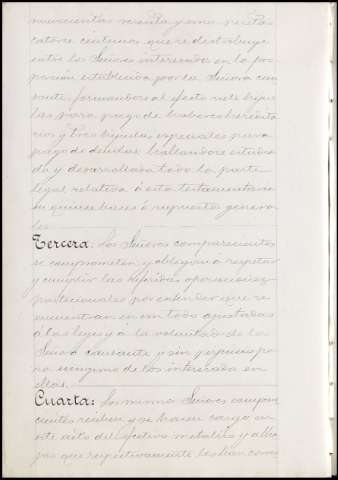 novecientas noventa y una pesetas
catorce céntimos, que se distribuye
entre los Señores interesados en la pro-
porción establecida por la Señora cau-
sante, formandose al efecto siete hijue-
las para pago de haberes heredita-
rios y tres hijuelas especiales para
pago de deudas, hallandose estudia-
da y desarrollada toda la parte
legal relativa á esta testamentaría
en quince bases ó supuestos genera-
les.
Tercera: Los Señores comparecientes
se comprometen y obligan á respetar
y cumplir las referidas operaciones
particionales por entender que se
encuentran en un todo ajustadas
á las leyes y á la voluntad de la
Señora causante y sin perjuicio pa-
ra ninguno de los interesados en
ellas.
Cuarta: Los mismos Señores compare-
cientes reciben y se hacen cargo en
este acto del efectivo metalico y alha-
jas que respectivamente les han corres